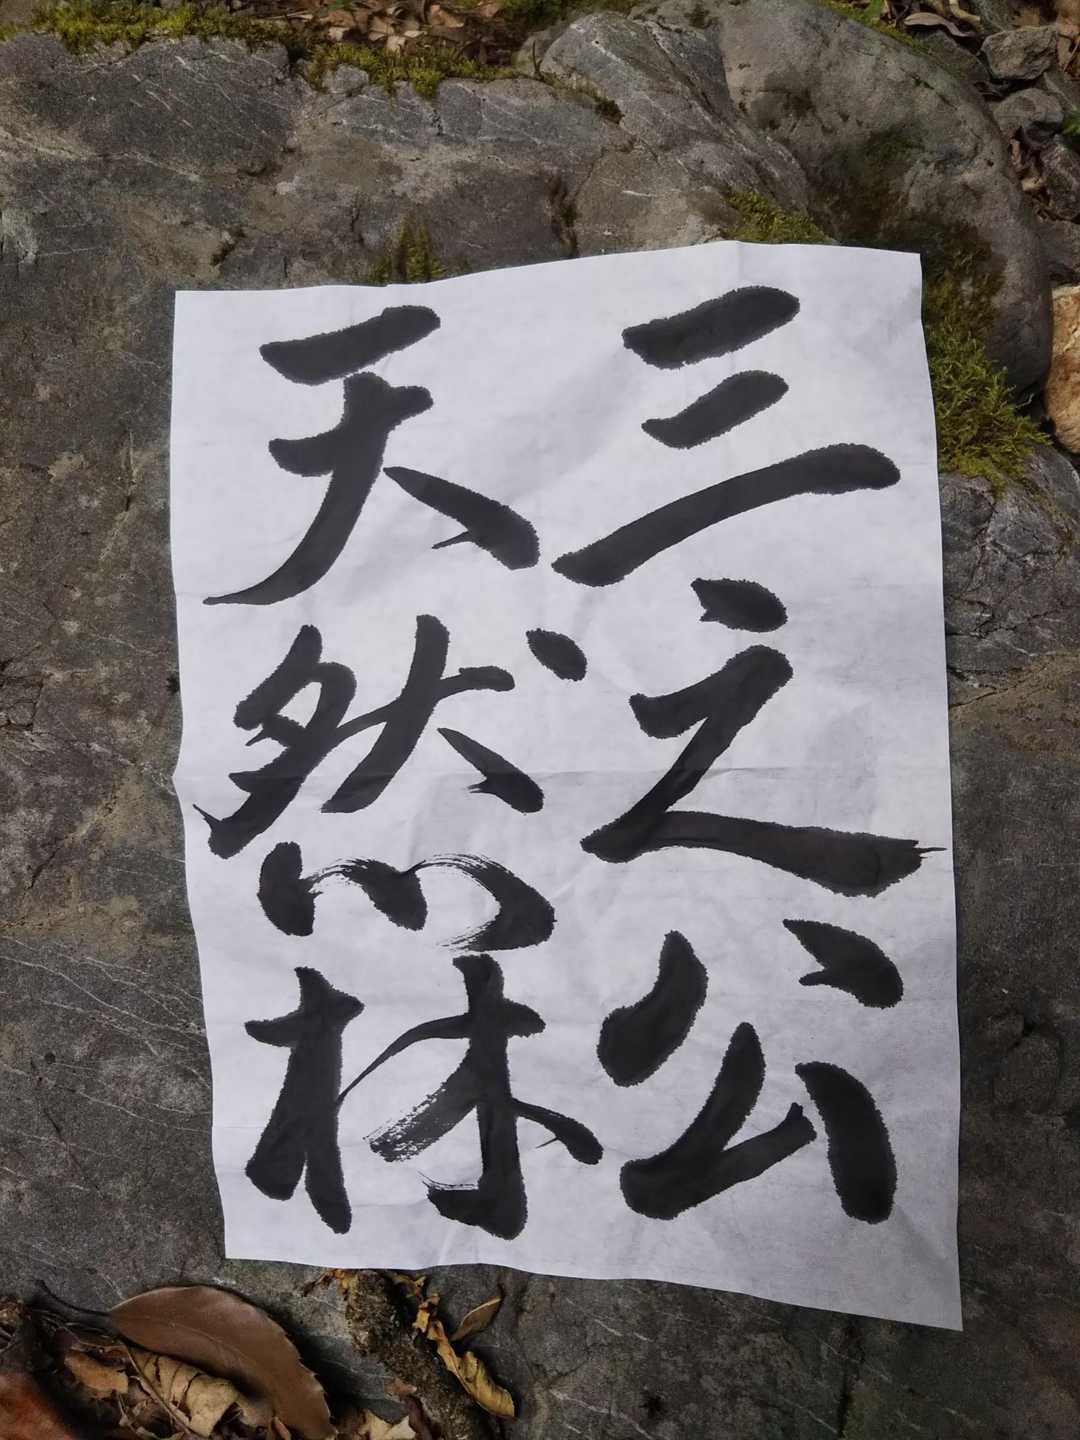 三之公
天然林